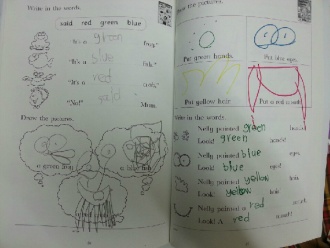 Write in the words.
said red green blue
"It's a green frog."
"It's a blue
"It's a red
"No!" said Mum.
Draw the pictures.
a green frog
a blue
the pictures.
Put green hands.
Put blue eyes.
Put yellow hair.
Put a red mouth.
Write in the words.
Nelly painted green hands!
Look! green hands!
Nelly painted blue eyes!
Look! blue eyes!
Nelly painted yellow hair!
Look! yellow hair!
Nelly painted a red mouth!
Look! A red mouth!